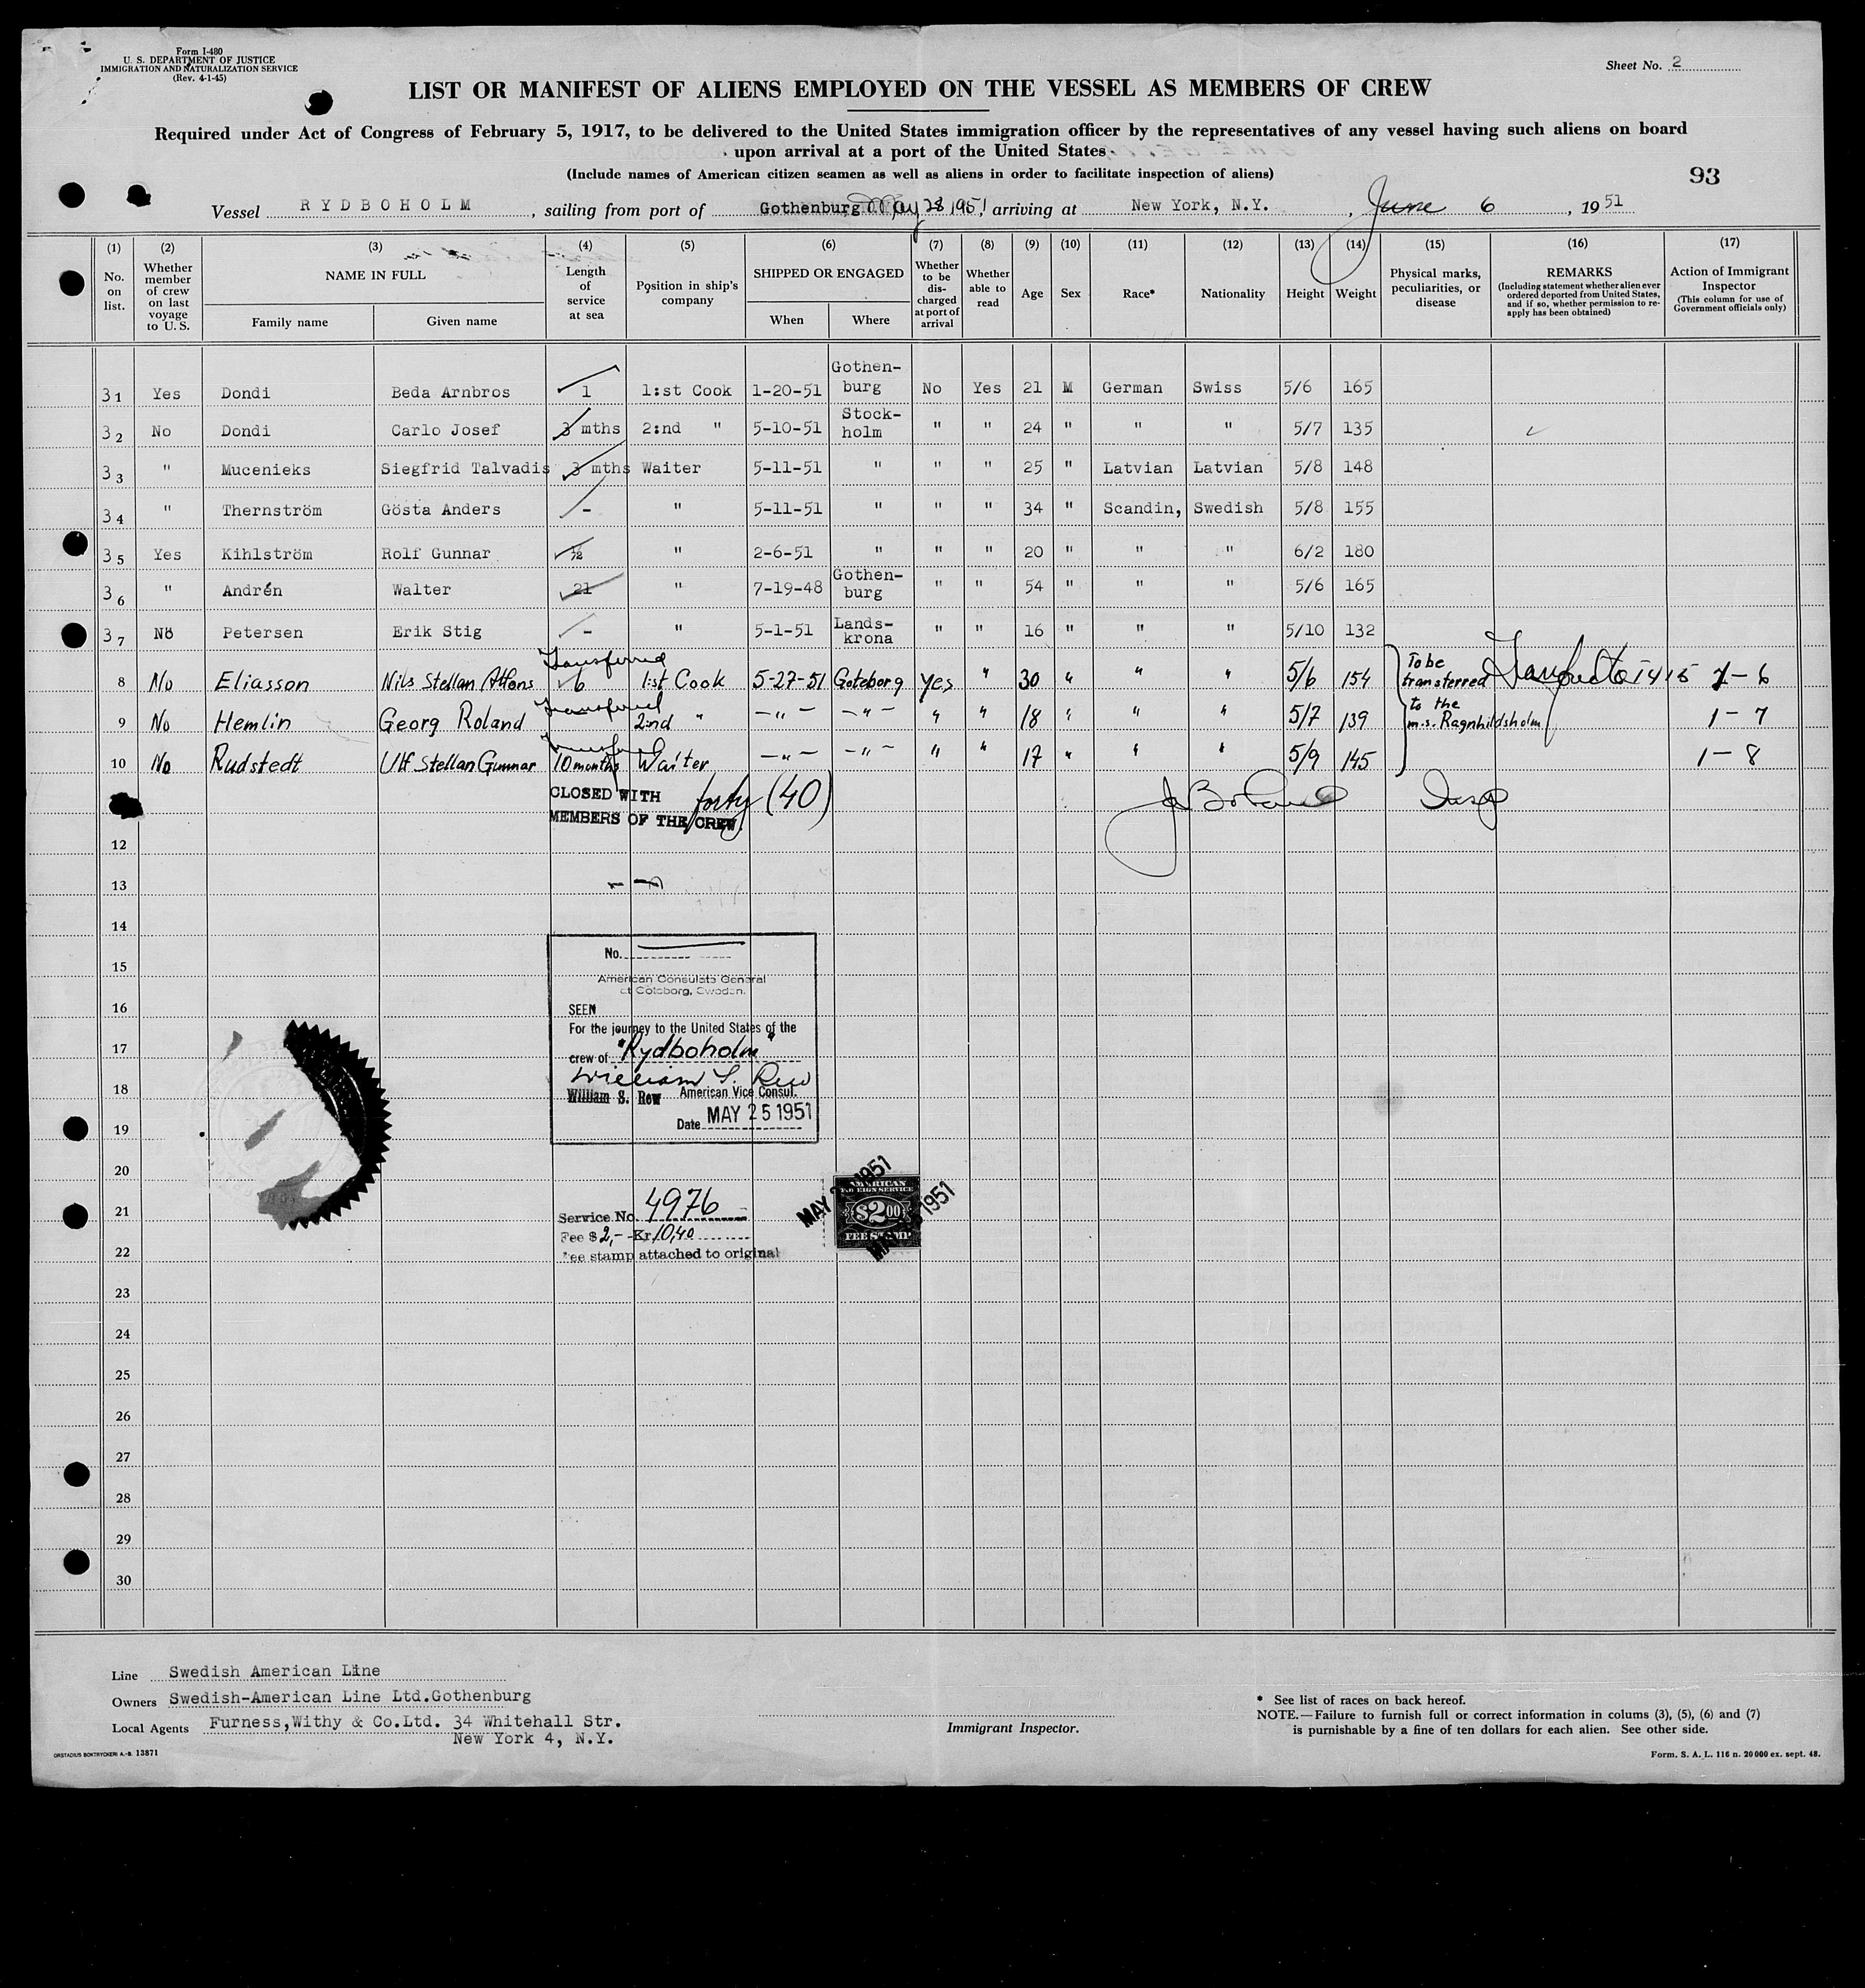 Form I-480
U. S. DEPARTMENT OF JUSTICE
IMMIGRATION AND NATURALIZATION SERVICE
(Rev. 4-1-45)
Sheet No. 2
LIST OR MANIFEST OF ALIENS EMPLOYED ON THE VESSEL AS MEMBERS OF CREW
Required under Act of Congress of February 5, 1917, to be delivered to the United States immigration officer by the representatives of any vessel having such aliens on board
upon arrival at a port of the United States
(Include names of American citizen seamen as well as aliens in order to facilitate inspection of aliens)
93
Vessel RYDBOHOLM, sailing from port of Gothenburg May 28, 1951, arriving at New York, N.Y., June 6, 1951
(1) (2) (3) (4) (5) (6) (7) (8) (9) (10) (11) (12) (13) (14) (15) (16) (17)
No. on list.
Whether member of crew on last voyage to U. S.
NAME IN FULL
Family name
Given name
Length of service at sea
Position in ship's company
SHIPPED OR ENGAGED
When
Where
Whether to be discharged at port of arrival
Whether able to read
Age
Sex
Race*
Nationality
Height
Weight
Physical marks, peculiarities, or disease
REMARKS
(Including statement whether alien ever ordered deported from United States, and if so, whether permission to reapply has been obtained)
Action of Immigrant Inspector
(This column for use of Government officials only)
31 Yes Dondi Beda Arnbros 1 1:st Cook 1-20-51 Gothenburg No Yes 21 M German Swiss 5/6 165
32 No Dondi Carlo Josef 3 mths 2:nd " 5-10-51 Stockholm " " 24 " " " 5/7 135
33 " Mucenieks Siegfrid Talvadis 3 mths Waiter 5-11-51 " " " 25 " Latvian Latvian 5/8 148
34 " Thernström Gösta Anders - " 5-11-51 " " " 34 " Scandin, Swedish 5/8 155
35 Yes Kihlström Rolf Gunnar ½ " 2-6-51 " " " 20 " " " 6/2 180
36 " Andrén Walter 21 " 7-19-48 Gothenburg " " 54 " " " 5/6 165
37 No Petersen Erik Stig - " 5-1-51 Landskrona " " 16 " " " 5/10 132
Transferred
8 No Eliasson Nils Stellan Alfons 6 1:st Cook 5-27-51 Goteborg yes " 30 " " " 5/6 154 To be transferred 1-6
Transferred
9 No Hemlin Georg Roland 2:nd " -"- -"- " " 18 " " " 5/7 139 to the m.s. Ragnhildsholm 1-7
10 No Rudstedt Ulf Stellan Gunnar 10 months Waiter -"- -"- " " 17 " " " 5/9 145 1-8
CLOSED WITH forty (40)
MEMBERS OF THE CREW.
Insp
12
13
14
15
16
17
18
19
20
21
22
23
24
25
26
27
28
29
30
No.
American Consulate General
at Goteborg, Sweden.
SEEN
For the journey to the United States of the
crew of "Rydboholm"
William S. Rew
William S. Rew American Vice Consul.
Date MAY 25 1951
Service No. 4976
Fee $2,- Kr 10,40
Fee stamp attached to original
AMERICAN
FOREIGN SERVICE
$2.00
FEE STAMP
Line Swedish American Line
Owners Swedish-American Line Ltd.Gothenburg
Local Agents Furness,Withy & Co.Ltd. 34 Whitehall Str.
New York 4, N.Y.
Immigrant Inspector.
* See list of races on back hereof.
NOTE.—Failure to furnish full or correct information in colums (3), (5), (6) and (7)
is purnishable by a fine of ten dollars for each alien. See other side.
ORSTADIUS BOKTRYCKERI A.-B. 13871
Form. S. A. L. 116 n. 20000 ex. sept. 48.